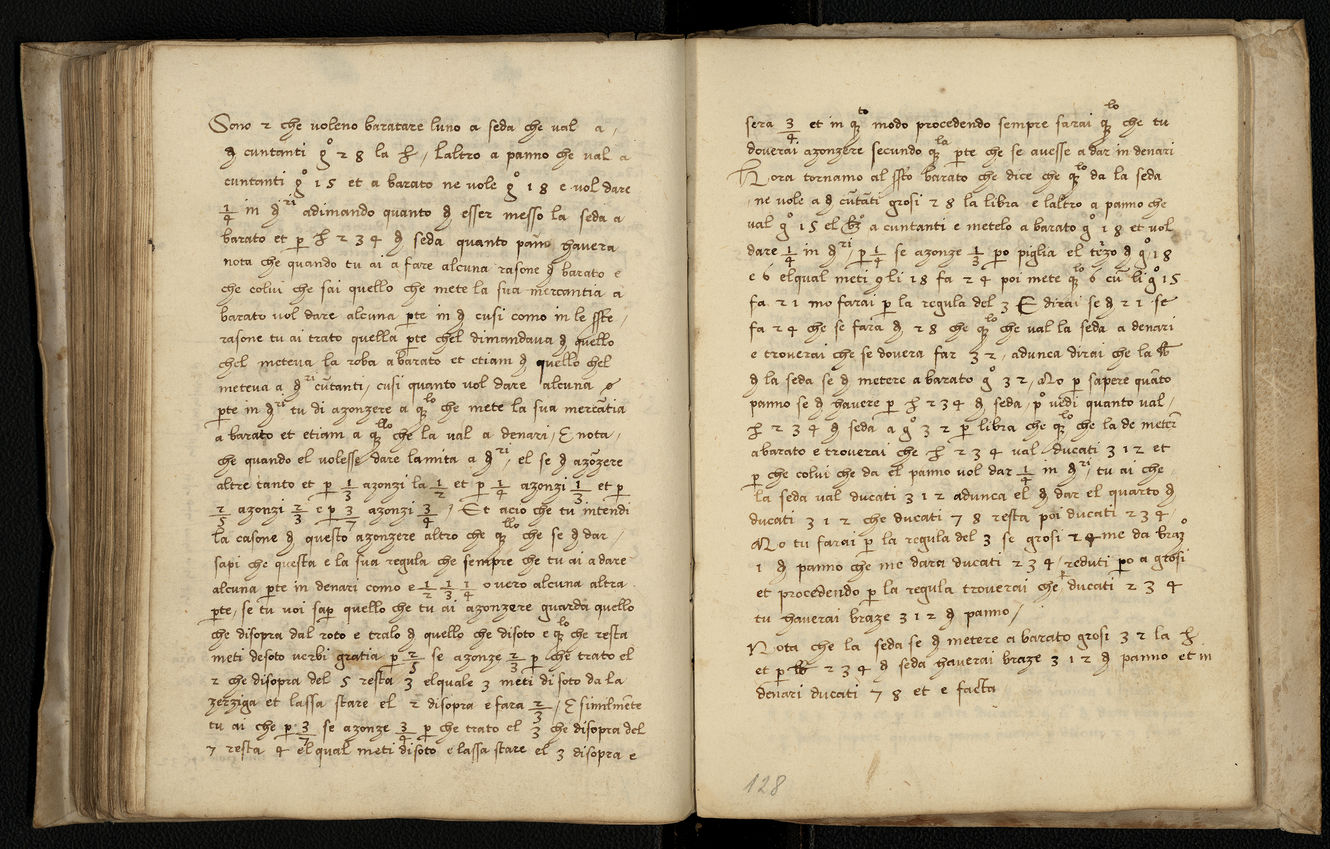 Sono 2 che voleno baratare luno a seda che val a /
đ cuntanti gº 28 la ℔ / laltro a panno che val a
cuntanti gº 15 et a barato ne vole gº 18 e vol dare
1/4 in đri adimando quanto đ esser messo la seda a
barato et p ℔ 234 đ seda quanto pano havera
nota che quando tu ai a fare alcuna rasone đ barato e
che colui che sai quello che mete la sua mercantia a
barato vol dare alcuna pte in đ cusi como in le sste /
rasone tu ai trato quella pte chel dimandava đ quello
chel meteva la roba a barato et etiam đ quello chel
meteva a đri cūtanti / cusi quanto vol dare alcuna
pte in đri tu di azonzere a qlo che mete la sua mercātia
a barato et etiam a qllo che la val a denari / E nota /
che quando el volesse dare la mita a đri / el se đ azōzere
altre tanto et p 1/3 azonzi la 1/2 et p 1/4 azonzi 1/3 et p
2/5 azonzi 2/3 e p 3/7 azonzi 3/4 / Et acio che tu intendi
la casone đ questo azonzere altro che qllo che se đ dar /
sapi che questa e la sua regula che sempre che tu ai a dare
alcuna pte in denari como e 1/2 1/3 1/4 o vero alcuna altra
pte / se tu voi sap quello che tu ai azonzere guarda quello
che disopra dal roto e tralo đ quello che disoto e qlo che resta
meti desoto verbi gratia p 2/5 se azonze 2/3 p che trato el
2 che disopra del 5 resta 3 elquale 3 meti di soto da la
zerziga et lassa stare el 2 disopra e fara 2/3 / E similmēte
tu ai che p 3/7 se azonze 3/4 p che trato el 3 che disopra del
7 resta 4 el qual meti disoto e lassa stare el 3 disopra e
sera 3/4 et in qto modo procedendo sempre sarai qlo che tu
doverai azonzere secundo qla pte che se avesse a dar in denari
Hora tornamo al ssto barato che dice che qlo da la seda
ne vole a đ cūtāti grosi 28 la libra e laltro a panno che
val gº 15 el bzº a cuntanti e metelo a barato gº 18 et vol
dare 1/4 in đri / p 1/4 se azonze 1/3 po piglia el terzo đ gº 18
e 6 elqual meti 9 li 18 fa 24 poi mete qlo 6 cū li gº 15
fa 21 mo farai p la regula del 3 E dirai se đ 21 se
fa 24 che se fara đ 28 che qlo che val la seda a denari
e troverai che se dovera far 32 / adunca dirai che la ℔
đ la seda se đ metere a barato gº 32 / Mo p sapere quāto
panno se đ havere p ℔ 234 đ seda / pº vedi quanto val /
℔ 234 đ seda a gº 32 p libra che qlo che la de meter
a barato e troverai che ℔ 234 val ducati 312 et
p che colui che da el panno vol dar 1/4 in đri / tu ai che /
la seda val ducati 312 adunca el đ dar el quarto đ
ducati 312 che ducati 78 resta poi ducati 234 /
Mo tu farai p la regula del 3 se grosi 24 me da brazº
1 đ panno che me dara ducati 234 / reduti po a grosi
et procedendo p la regula troverai che p ducati 234
tu haverai braze 312 đ panno /
Nota che la seda se đ metere a barato grosi 32 la ℔
et p ℔ 234 đ seda haverai braze 312 đ panno et in
denari ducati 78 et e facta
128